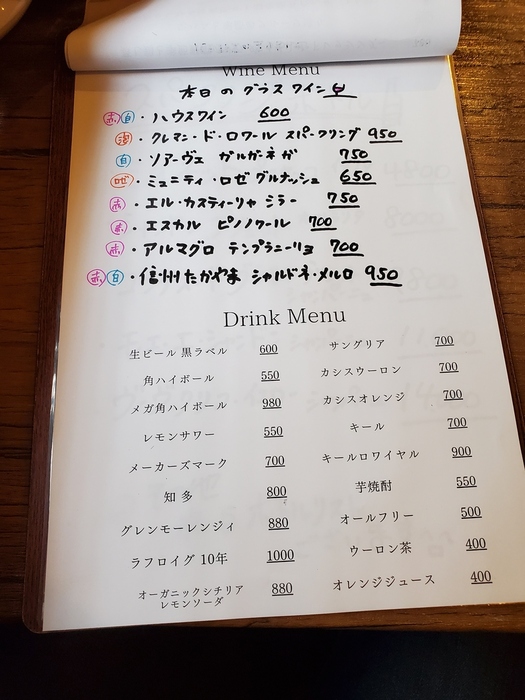 Wine Menu
本日のグラスワイン
赤 白・ハウスワイン 600
泡・クレマン・ド・ロワール スパークリング 950
白・ソアーヴェ ガルガーネガ 750
ロゼ・ミュニティ・ロゼ グルナッシュ 650
赤・エル・カスティーリャ シラー 750
赤・エスカル ピノノワール 700
赤・アルマグロ テンプラニーリョ 700
赤 白・信州たかやま シャルドネ・メルロ 950
Drink Menu
生ビール 黒ラベル 600
角ハイボール 550
メガ角ハイボール 980
レモンサワー 550
メーカーズマーク 700
知多 800
グレンモーレンジィ 880
ラフロイグ 10年 1000
オーガニックシチリア
レモンソーダ 880
サングリア 700
カシスウーロン 700
カシスオレンジ 700
キール 700
キールロワイヤル 900
芋焼酎 550
オールフリー 500
ウーロン茶 400
オレンジジュース 400